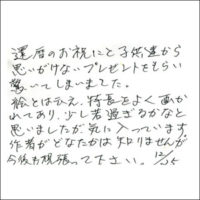 還暦のお祝にと子供達から
思いがけないプレゼントをもらい
驚いてしまいました。
絵とはいえ、特長をよく画か
れてあり、少し若過ぎるかなと
思いましたが気に入っています。
作者がどなたかは知りませんが
今後も頑張って下さい。 12/25